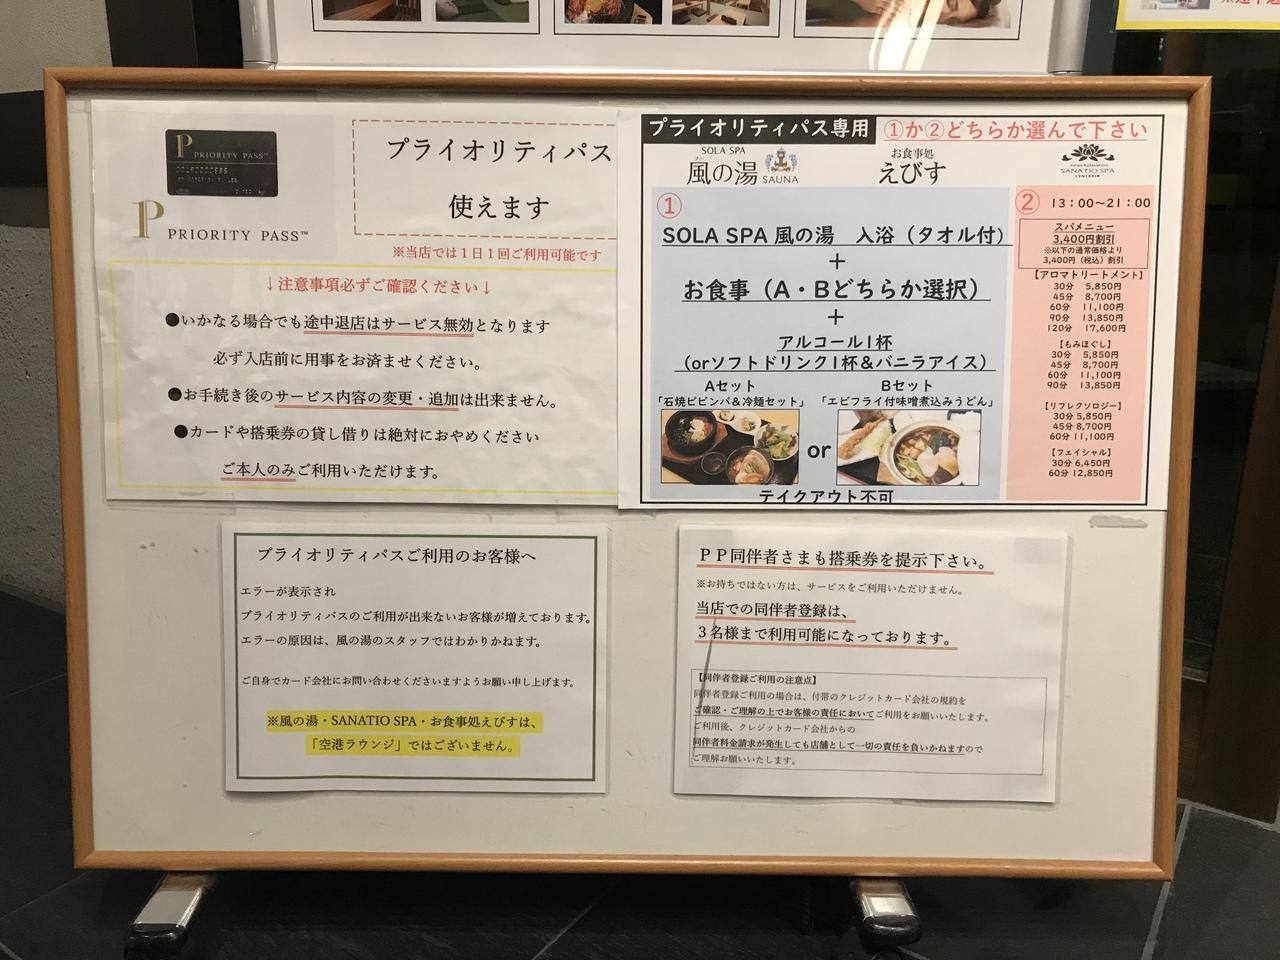 PRIORITY PASS™
PRIORITY PASS™
プライオリティパス
使えます
※当店では１日１回ご利用可能です
↓注意事項必ずご確認ください↓
●いかなる場合でも途中退店はサービス無効となります
必ず入店前に用事をお済ませください。
●お手続き後のサービス内容の変更・追加は出来ません。
●カードや搭乗券の貸し借りは絶対におやめください
ご本人のみご利用いただけます。
プライオリティパス専用
①か②どちらか選んで下さい
SOLA SPA
風の湯
SAUNA
お食事処
えびす
SANATIO SPA
CENTRAIR
①
SOLA SPA 風の湯　入浴（タオル付）
＋
お食事（A・Bどちらか選択）
＋
アルコール1杯
（orソフトドリンク1杯＆バニラアイス）
Aセット
「石焼ビビンバ＆冷麺セット」
Bセット
「エビフライ付味噌煮込みうどん」
or
テイクアウト不可
② 13：00～21：00
スパメニュー
3,400円割引
※以下の通常価格より
3,400円（税込）割引
【アロマトリートメント】
30分　5,850円
45分　8,700円
60分　11,100円
90分　13,850円
120分　17,600円
【もみほぐし】
30分　5,850円
45分　8,700円
60分　11,100円
90分　13,850円
【リフレクソロジー】
30分 5,850円
45分 8,700円
60分 11,100円
【フェイシャル】
30分 6,450円
60分 12,850円
プライオリティパスご利用のお客様へ
エラーが表示され
プライオリティパスのご利用が出来ないお客様が増えております。
エラーの原因は、風の湯のスタッフではわかりかねます。
ご自身でカード会社にお問い合わせくださいますようお願い申し上げます。
※風の湯・SANATIO SPA・お食事処えびすは、
「空港ラウンジ」ではございません。
ＰＰ同伴者さまも搭乗券を提示下さい。
※お持ちではない方は、サービスをご利用いただけません。
当店での同伴者登録は、
３名様まで利用可能になっております。
【同伴者登録ご利用の注意点】
同伴者登録ご利用の場合は、付帯のクレジットカード会社の規約を
ご確認・ご理解の上でお客様の責任においてご利用をお願いいたします。
ご利用後、クレジットカード会社からの
同伴者料金請求が発生しても店舗として一切の責任を負いかねますので
ご理解お願いいたします。